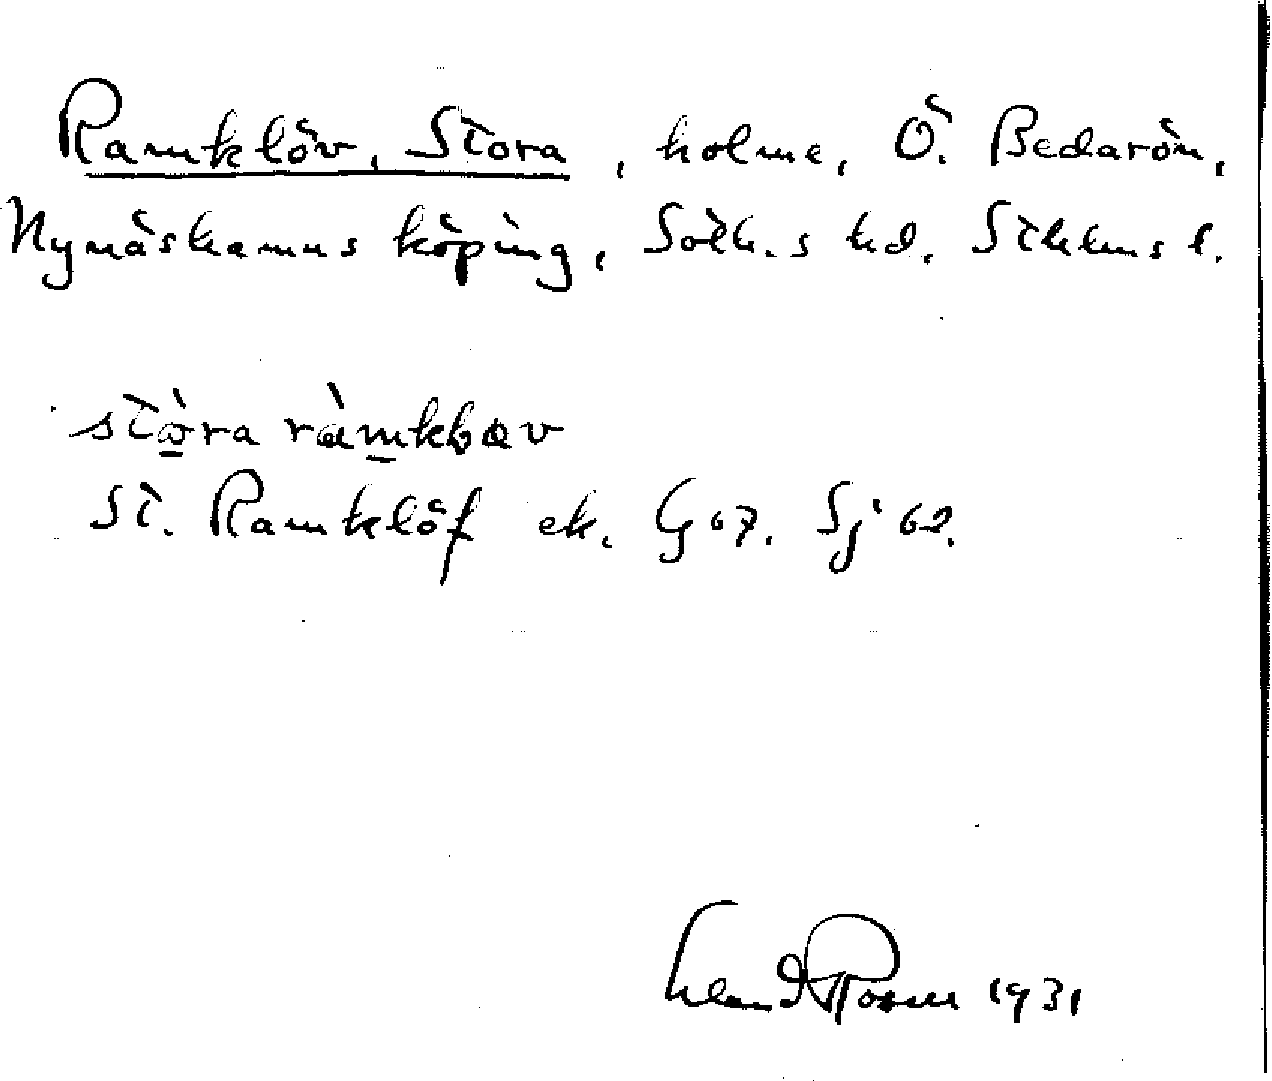 Ramklöv, Stora, holme, Ö. Bedarön,
Nynäshamns köping, Soth.s hd. Sthlms l.
stòra ràmkləv
St. Ramklöf ek. G 07. Sj 62.
1931